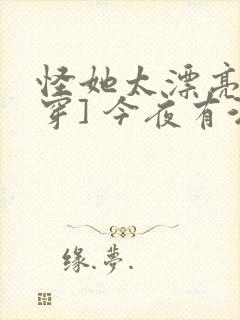 怪她太漂亮
穿] 今夜有
缘.夢.